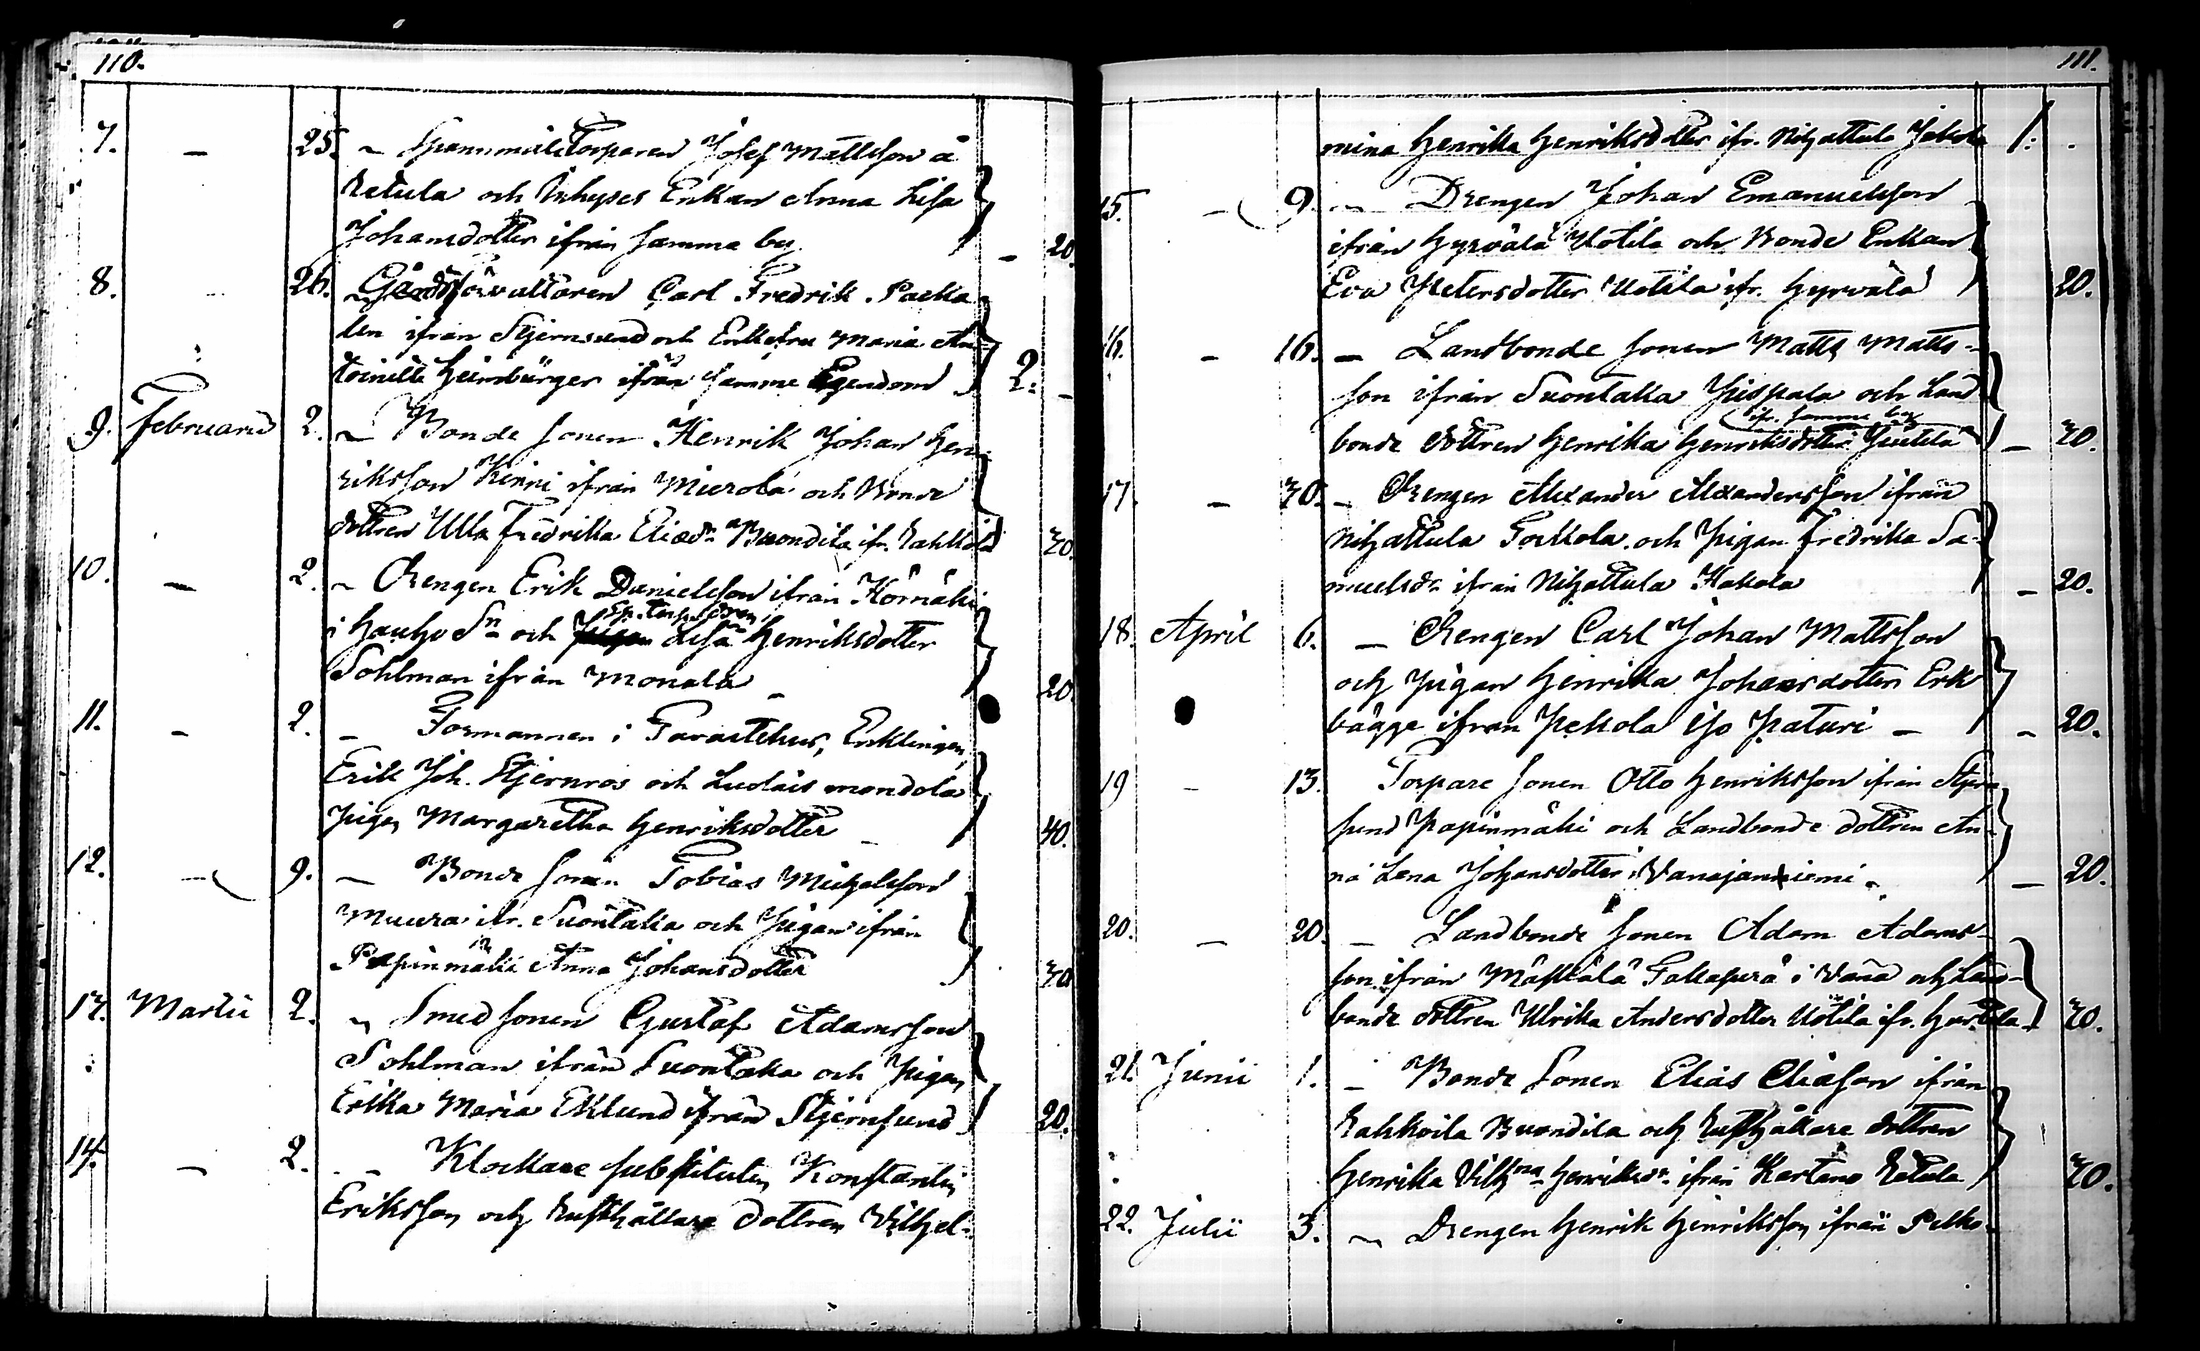 110.
7. – 25. – Spannmåls Torparen Josef Mattsson å
Retula och Inhyses Enkan Anna Lisa
Johansdotter ifrån samma by – 20
8. 26. – Gårdsförvaltaren Carl Fredrik Packa
len ifrån Stjernsund och Enkefru Maria An-
toinette Heimbürger ifrån samma Egendom 2. –
9. Februarii 2. – Bonde Sonen Henrik Johan Hen-
riksson Kinni ifrån Mierola och Bonde
dottren Ulla Fredrika Eliædr Buondila ifr. Rahkoila 30.
10. – 2. – Drengen Erik Danielsson ifrån
i Hauho Sn och Sp. Torp. dotren Lisa Henriksdotter
Sohlman ifrån Monala – 20
11. – 2. – Formannen i Tavastehus, Enklingen,
Erik Joh. Stjernros och Ludais mondola
Pigan Margaretha Henriksdotter – 40.
12. – 9. – Bonde Sonen Tobias Michelsson
Muura ifr. Suontaka och Pigan ifrån
Papinmäki Anna Johansdotter 30
13. Martii 2. – Smed sonen Gustaf Adamsson
Sohlman ifrån Suontaka och Pigan
Erika Maria Eklund ifrån Stjernsund 20.
14. – 2. – Klockare substituten Konstantin
Eriksson och Rusthållare dottren Vilhel-
111.
mina Henrika Henriksdotter ifr. Nihattula Jakola 1. .
15. – 9. – Drengen Johan Emanuelsson
ifrån Hyrvälä Uotila och Bonde Enkan
Eva Petersdotter Uotila ifr. Hyrvälä 20.
16. – 16. – Landbonde sonen Matts Matts-
son ifrån Suontaka Pispala och Land
ifr. samma by
bonde dottren Henrika Henriksdotter Juutila – 30.
17. – 30. – Drengen Alexander Alexandersson ifrån
Nihattula Torkola och Pigan Fredrika Sa-
muelsdr ifrån Nihattula Kakola – 20.
18. April 6. – Drengen Carl Johan Mattsson
och Pigan Henrika Johansdotter Erk
bägge ifrån Pekola Iso Paturi – – 20.
19 – 13. Torpare sonen Otto Henriksson ifrån Stjern
sund Papinmäki och Landbonde dottren An-
na Lena Johansdotter i Vanajaniemi – – 20.
20. – 20. – Landbonde sonen Adam Adams-
son ifrån Mäskälä Tallaperä i Vana och Land-
bonde dottren Ulrika Andersdotter Uotila ifr. Harvila 30.
21. Junii 1. – Bonde Sonen Elias Eliasson ifrån
Rahkoila Buondila och Rusthållare dottren
Henrika Vilhna Henriksdr ifrån Kartano Retula 30.
22. Julii 3. – Drengen Henrik Henriksson ifrån Pelko-